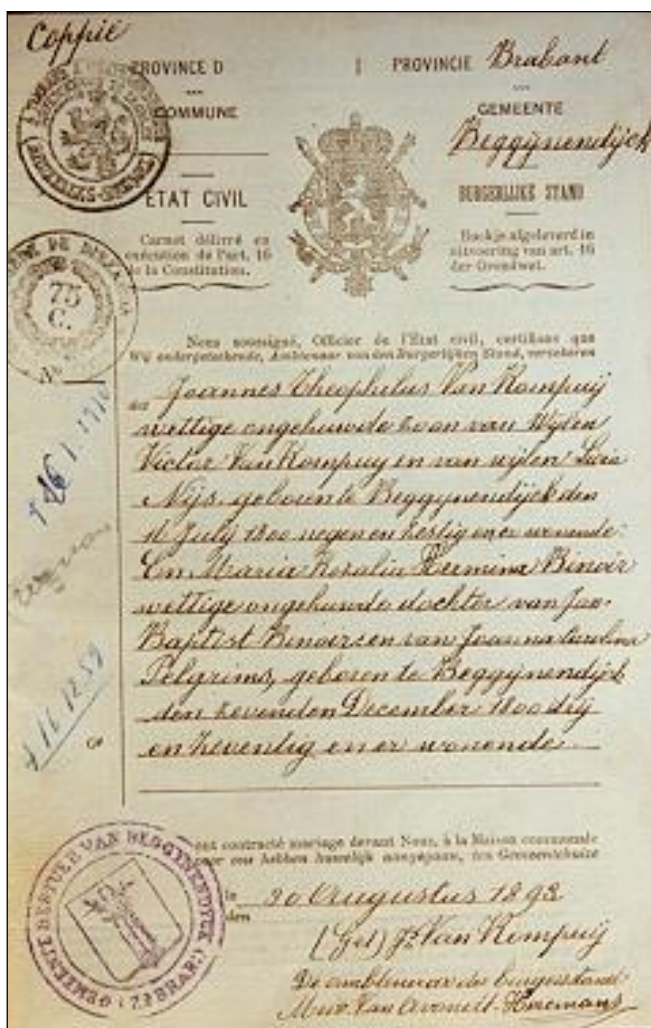 Coppie
PROVINCE D
PROVINCIE Brabant
COMMUNE
GEMEENTE
Beggijnendijck
ETAT CIVIL
BURGERLIJKE STAND
Carnet délivré en
exécution de l'art. 16
de la Constitution.
Boekje afgeleverd in
uitvoering van art. 16
der Grondwet.
75
C.
Nous soussigné, Officier de l'Etat civil, certifions que
Wij ondergeteekende, Ambtenaar van den Burgerlijken Stand, verzekeren
Joannes Theophilus Van Rompuij
wettige ongehuwde zoon van wijlen
Victor Van Rompuy en van wijlen
Nijs geboren te Beggijnendijck den
July 1800 negen en zestig en er wonende
En Maria Rozalia Hermina Binoir
wettige ongehuwde dochter van Jan
Baptist Binoir en van Joanna Carolina
Pelgrims, geboren te Beggijnendijck
den zevenden December 1800 drij
en zeventig en er wonende
† 16.12.59
ont contracté mariage devant Nous, à la Maison communale
voor ons hebben huwelijk aangegaan, ten Gemeentehuize
le
den
Augustus 189
(Get) Van Rompuij
De ambtenaar der burgerstand
Van
GEMEENTE BESTUUR VAN BEGGYNENDYCK (BRAB:)